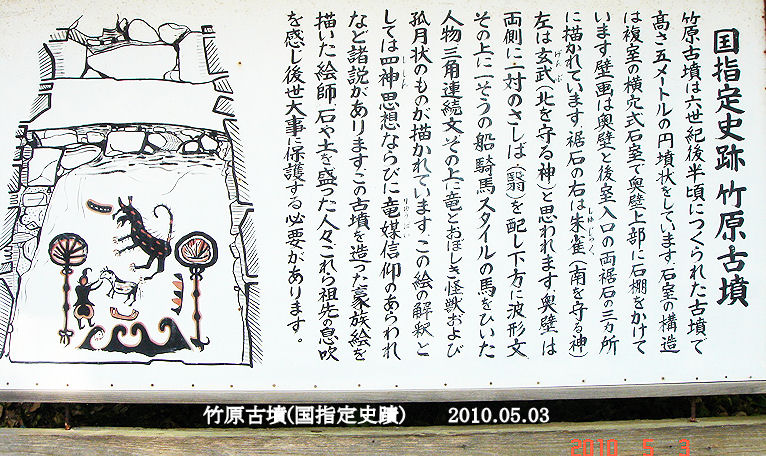 国指定史跡 竹原古墳
竹原古墳は六世紀後半頃につくられた古墳で
高さ五メートルの円墳状をしています。石室の構造
は複室の横穴式石室で奥壁上部に石棚をかけて
います。壁画は奥壁と後室入口の両裾石の三ヵ所
に描かれています。裾石の右は朱雀(南を守る神)
しゅじゃく
左は玄武(北を守る神)と思われます。奥壁は
げんぶ
両側に一対のさしば(翳)を配し下方に波形文
その上に一そうの船騎馬スタイルの馬をひいた
人物三角連続文その上に竜とおぼしき怪獣および
孤月状のものが描かれています。この絵の解釈と
しては四神思想ならびに竜媒信仰のあらわれ
ししん
りゅうばい
など諸説があります。この古墳を造った豪族絵を
描いた絵師、石や土を盛った人々これら祖先の息吹
を感じ後世大事に保護する必要があります。
竹原古墳(国指定史蹟) 2010.05.03
2010 5 3